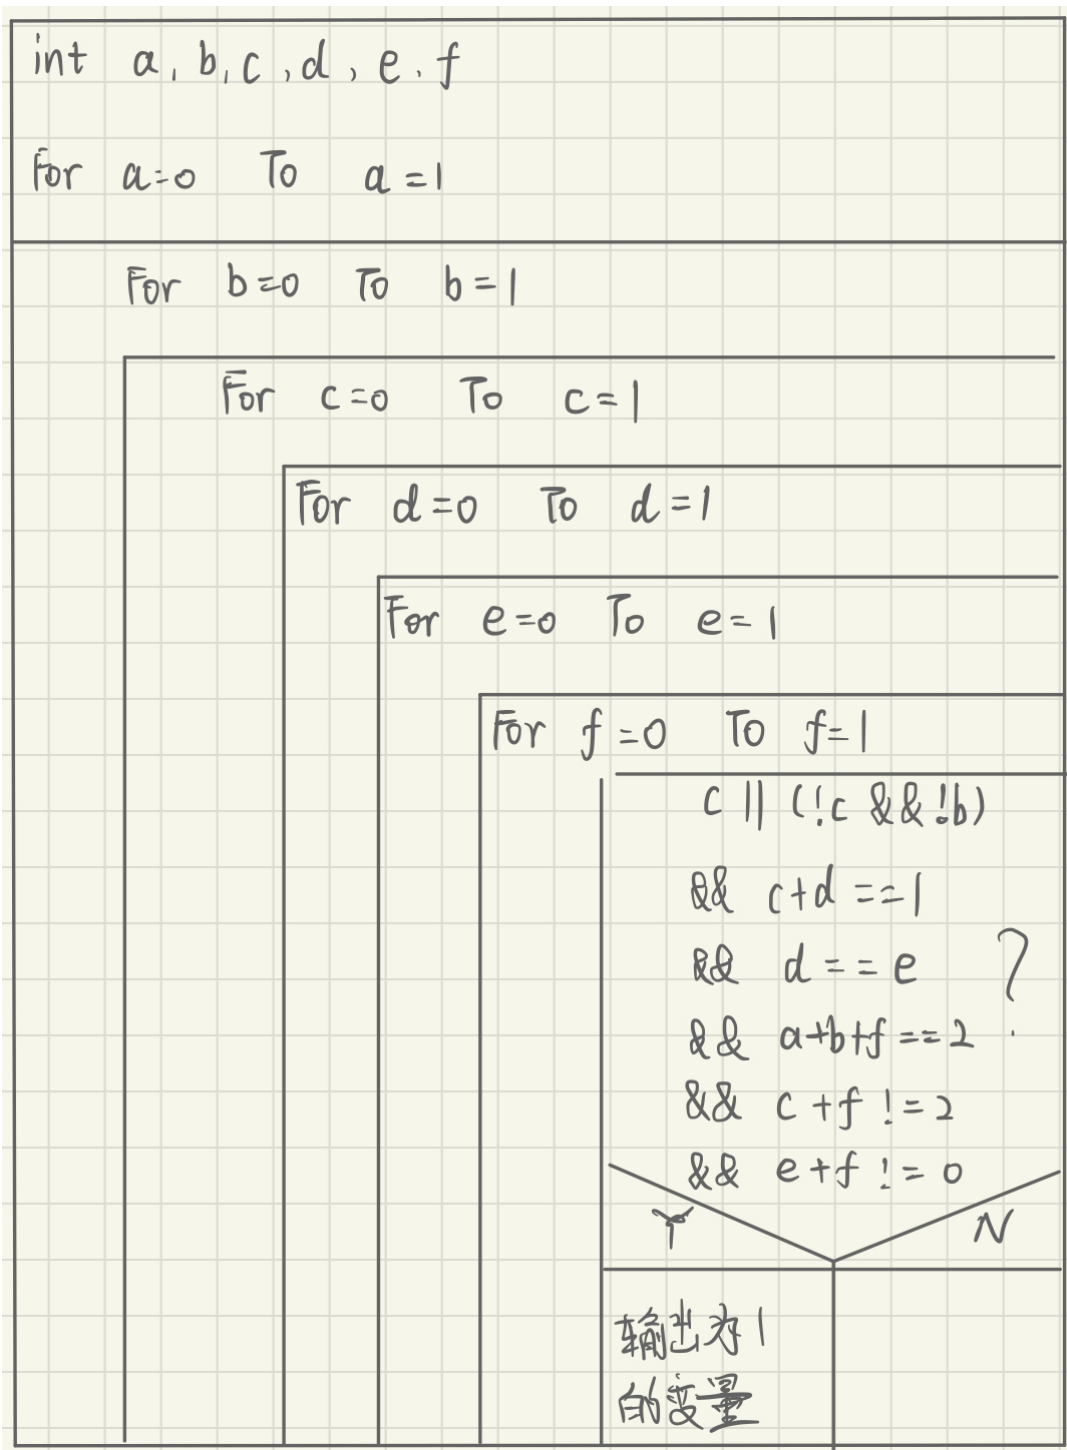 int a, b, c, d, e, f
For a=0 To a=1
For b=0 To b=1
For c=0 To c=1
For d=0 To d=1
For e=0 To e=1
For f=0 To f=1
c || (!c && !b)
&& c+d ==1
&& d == e ?
&& a+b+f ==2
&& c+f !=2
&& e+f !=0
Y N
输出为1
的变量